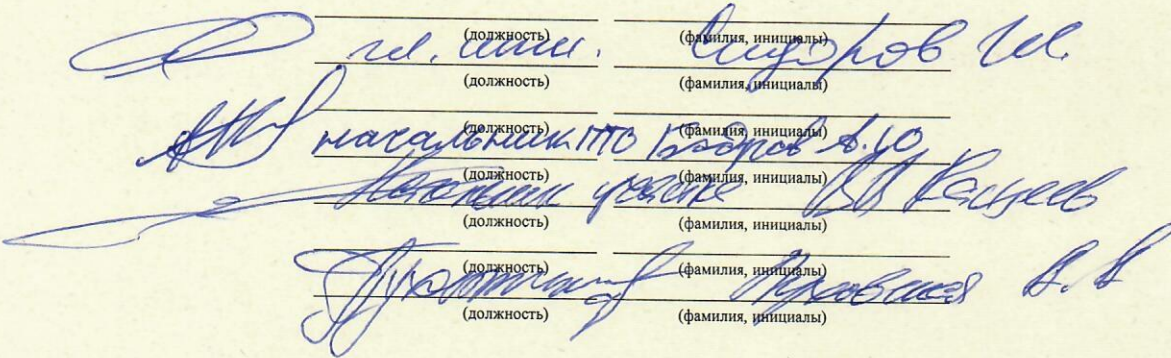 (должность) (фамилия, инициалы)
гл. инж. Сидоров И.
(должность) (фамилия, инициалы)
(должность) (фамилия, инициалы)
начальник ПТО Бодров А.Ю
(должность) (фамилия, инициалы)
Начальник участка В.В Кащеев
(должность) (фамилия, инициалы)
(должность) (фамилия, инициалы)
(должность) (фамилия, инициалы)